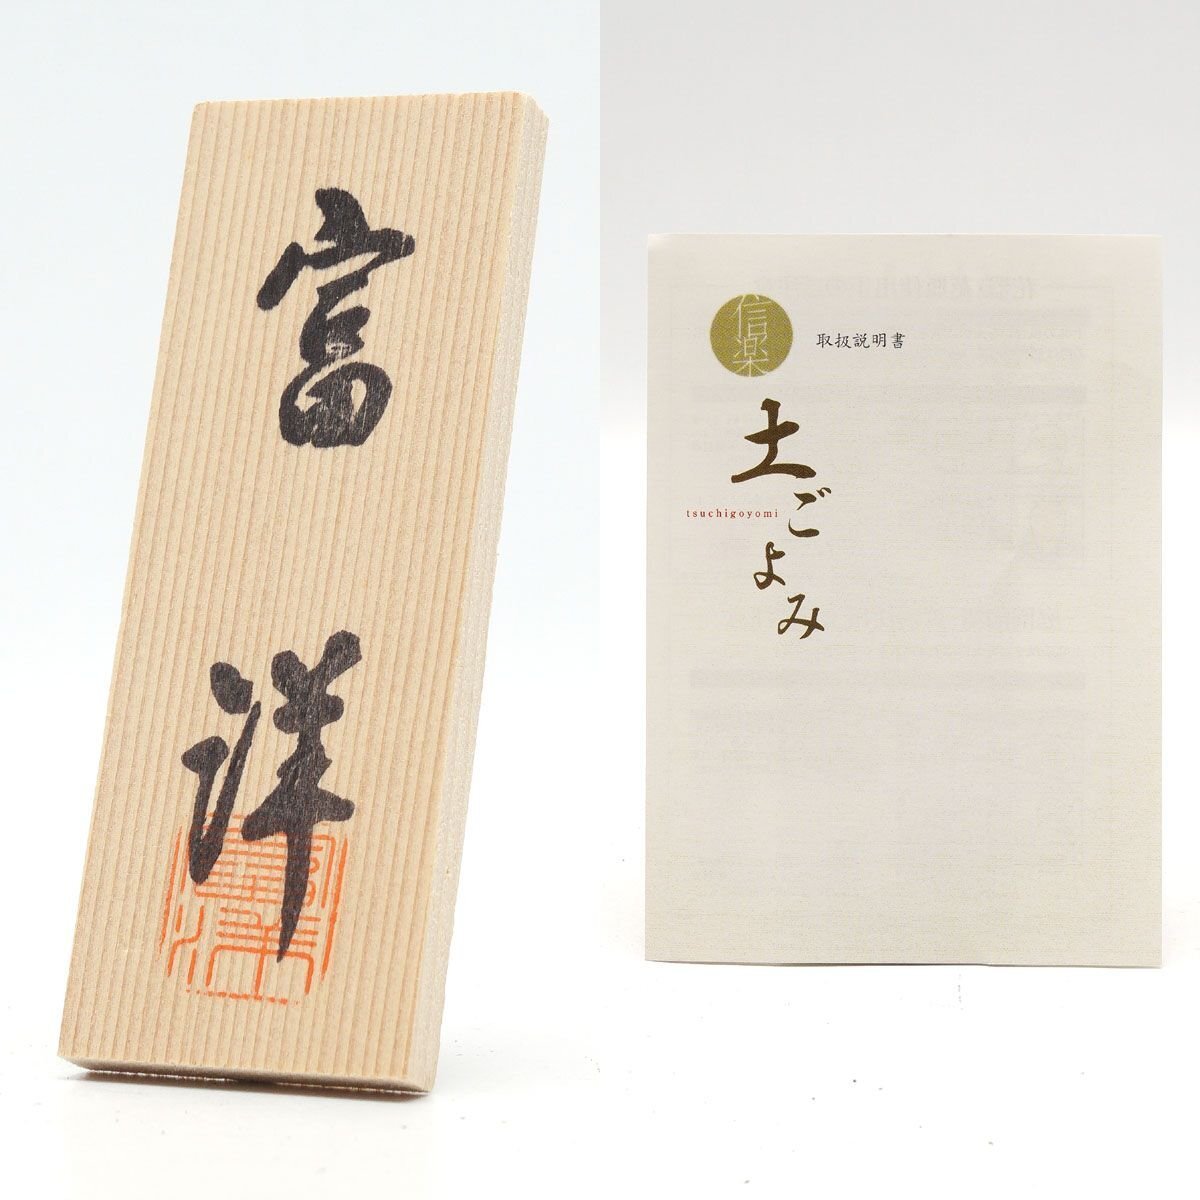 富洋
信楽
取扱説明書
土ごよみ
tsuchigoyomi